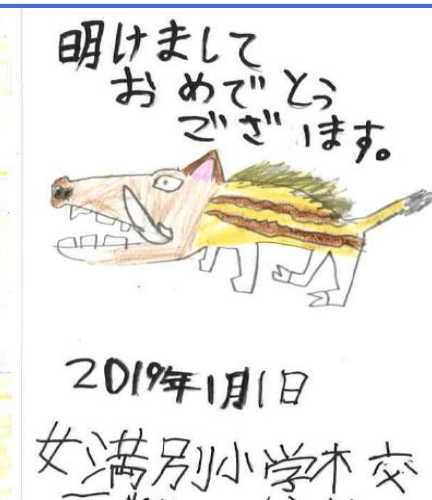 明けまして
おめでとう
ございます。
2019年1月1日
女満別小学木交